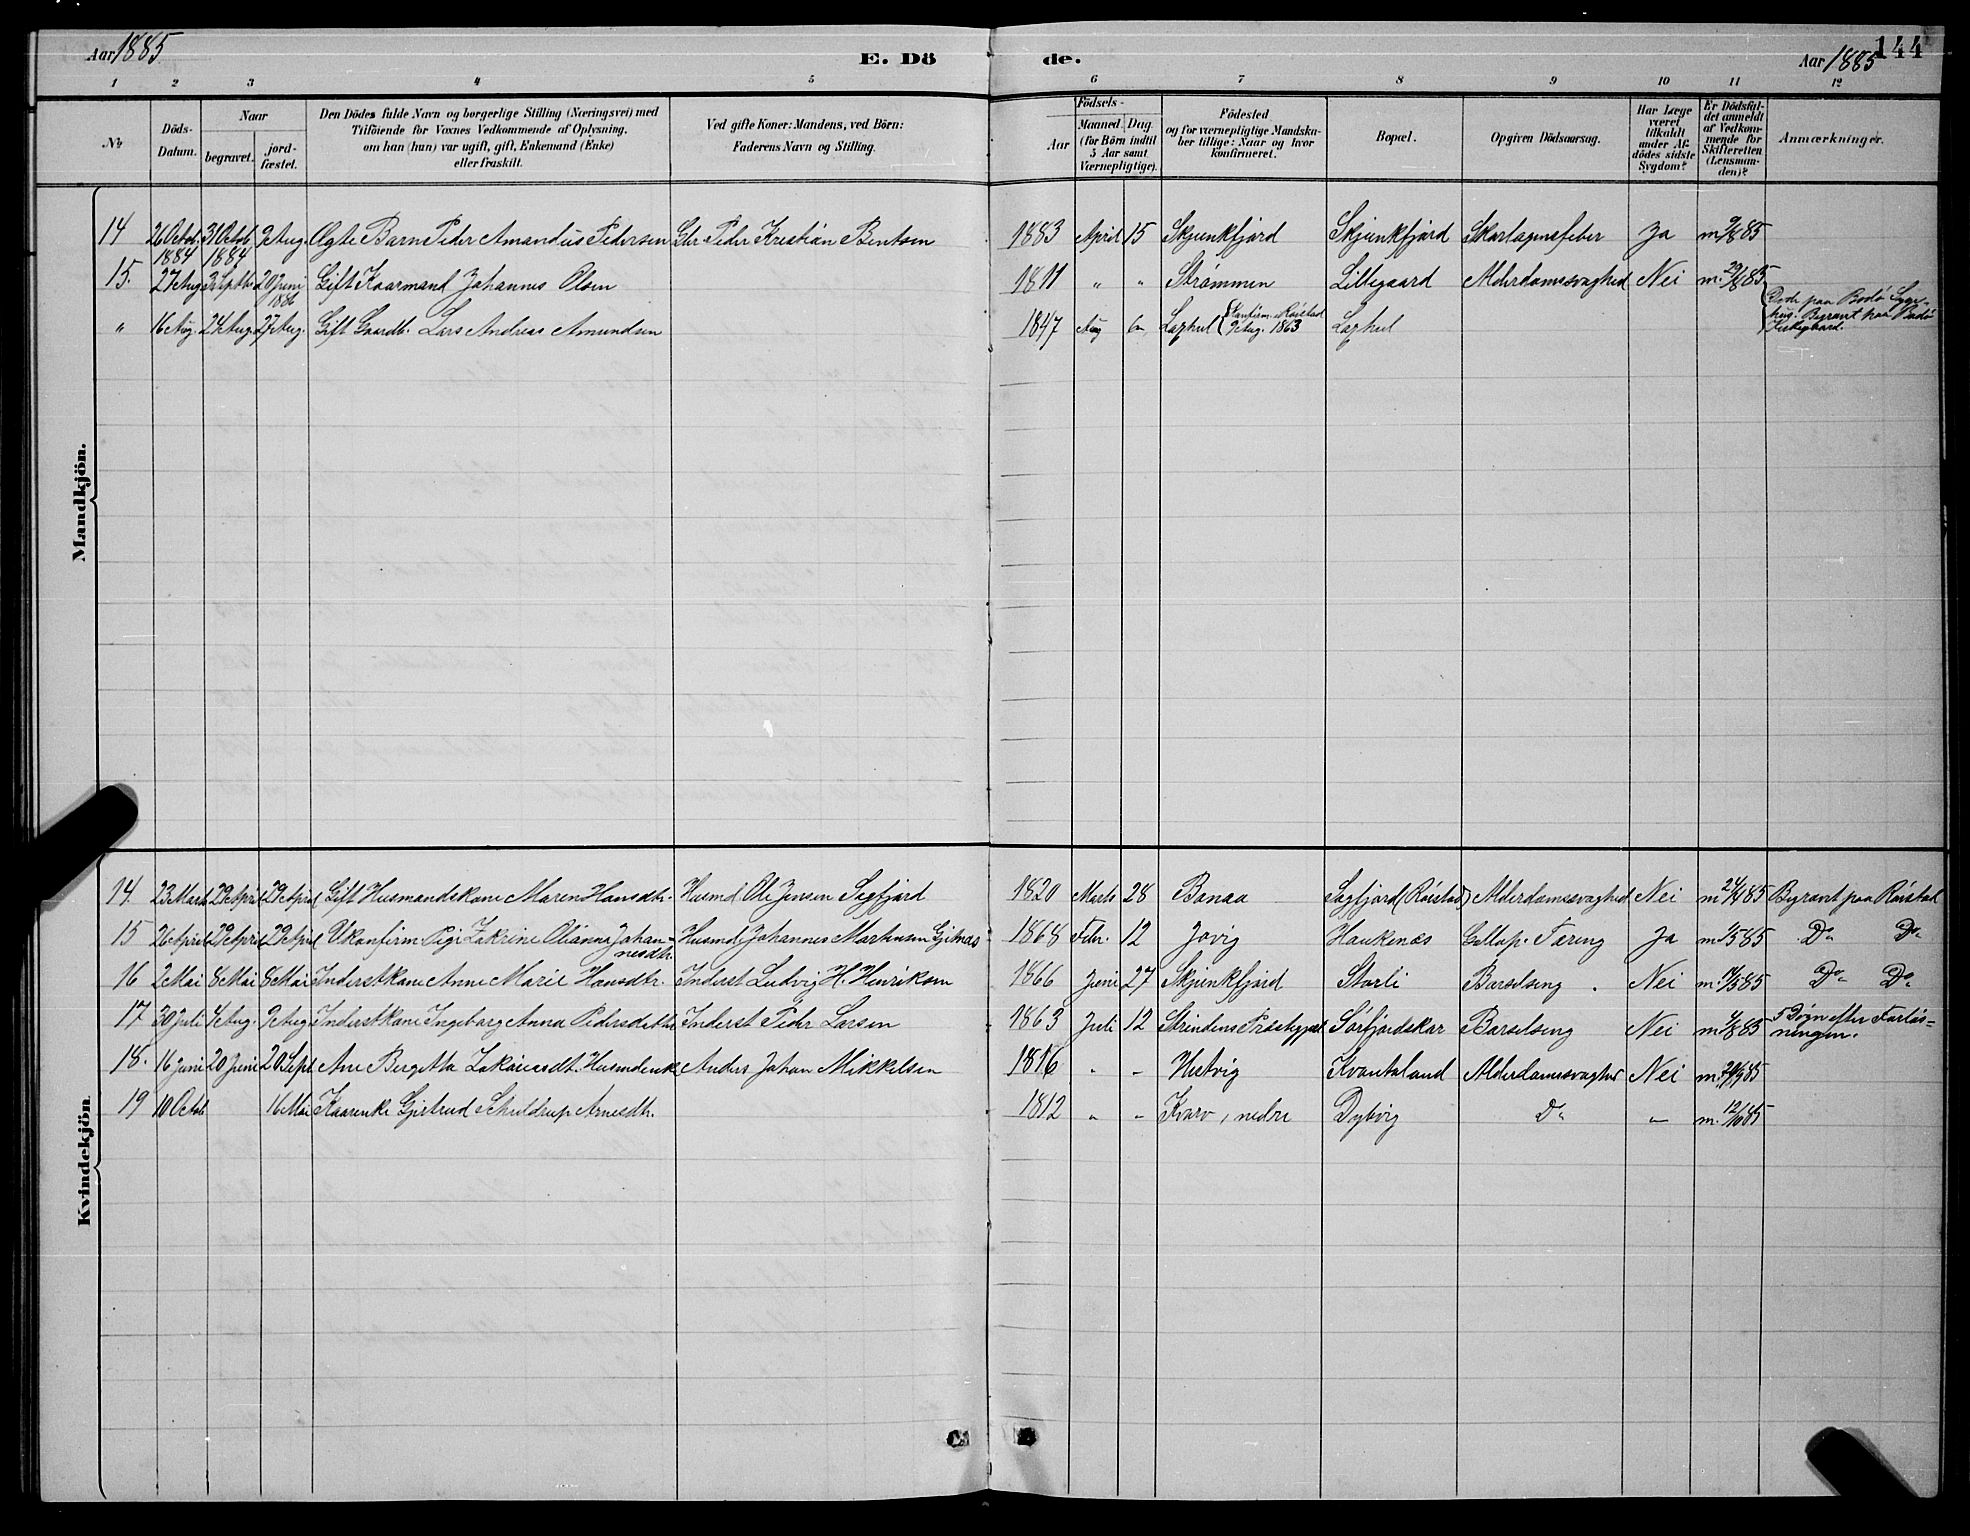 Aar 1885
E. Dö
de.
Aar 1885
144
1 2 3 4 5 6 7 8 9 10 11 12
No
Döds-
Datum.
Naar
begravet.
jord-
fæstet.
Den Dödes fulde Navn og borgerlige Stilling (Næringsvei) med
Tilföiende for Voxnes Vedkommende af Oplysning,
om han (hun) var ugift, gift, Enkemand (Enke)
eller fraskilt.
Ved gifte Koner: Mandens, ved Börn:
Faderens Navn og Stilling.
Födsels-
Aar
Maaned. Dag.
(for Börn indtil
5 Aar samt
Værnepligtige).
Födested
og for værnepligtige Mandska-
ber tillige: Naar og hvor
konfirmeret.
Bopæl.
Opgiven Dödsaarsag.
Har Læge
været
tilkaldt
under Af-
dödes sidste
Sygdom?
Er Dödsfal-
det anmeldt
af Vedkom-
mende for
Skifteretten
(Lensman-
den)?
Anmærkninger.
Mandkjön.
14 26 Octob. 1884 31 Octob 1884 9 Aug. Ægte Barn Peder Amandus Pedersen Gbr Peder Kristian Bentsen 1883 April 15 Skjunkfjord Skjunkfjord Skarlagensfeber Ja m 9/8 85
15. 27 Aug 3 Septbr 20 Juni 1886 Gift Kaarmand Johannes Olsen 1811 " " Strømmen Lillegaard Alderdomssvaghed Nei m. 29/8 85
" 16 Aug. 24 Aug 27 Aug. Gift Gaardb. Lars Andreas Amundsen 1847 Aug Laghul Konfirm. Røistad 1863 Laghul
Døde paa Bodø Syge-
hus. Begravt paa Bodø
Kirkegaard.
Kvindekjön
14. 23 Marts 29 April 29 April Gift Husmandskone Maren Hansdtr. Husmd Ole Jensen Sagfjord 1820 Marts 28 Bonaa Sagfjord (Røistad) Alderdomssvaghed Nei m 24/4 85 Begravt paa Røistad
15 26 April 29 April 29 April Ukonfirm. Pige Zakrine Olianna Johan-
nesdtr. Husmd Johannes Martinsen Gisnæs 1868 Febr. 12 Jøvig Haukenæs Gallop. Tæring Ja m 1/5 85 Do Do
16 2 Mai 8 Mai 8 Mai Inderstkone Anne Marie Hansdtr. Inderst Ludvig H. Henriksen 1866 Juni 27 Skjunkfjord Storli Barselseng Nei m. 11/5 85 Do Do
17 30 Juli 4 Aug. 9 Aug Inderstkone Ingeborg Anna Pedersdatter Inderst Peder Larsen 1863 Juli 12 Strindens Præstegjæld Sørfjordskar Barselseng Nei m. 4/8 85 5 Døgn efter Forløs-
ningen.
18. 16 Juni 20 Juni 20 Sept Ane Bergitta Zakariasdt. Husmdenke Anders Johan Mikkelsen 1816 " " Hestvig Kvantoland Alderdomssvaghed Nei m. 20/9 85
19 10 Octob 16 Mai Kaarenke Gjertrud Schjeldrup Arnesdtr. 1812 " " Kvarv, nedre Dybvig Do " m. 12/10 85